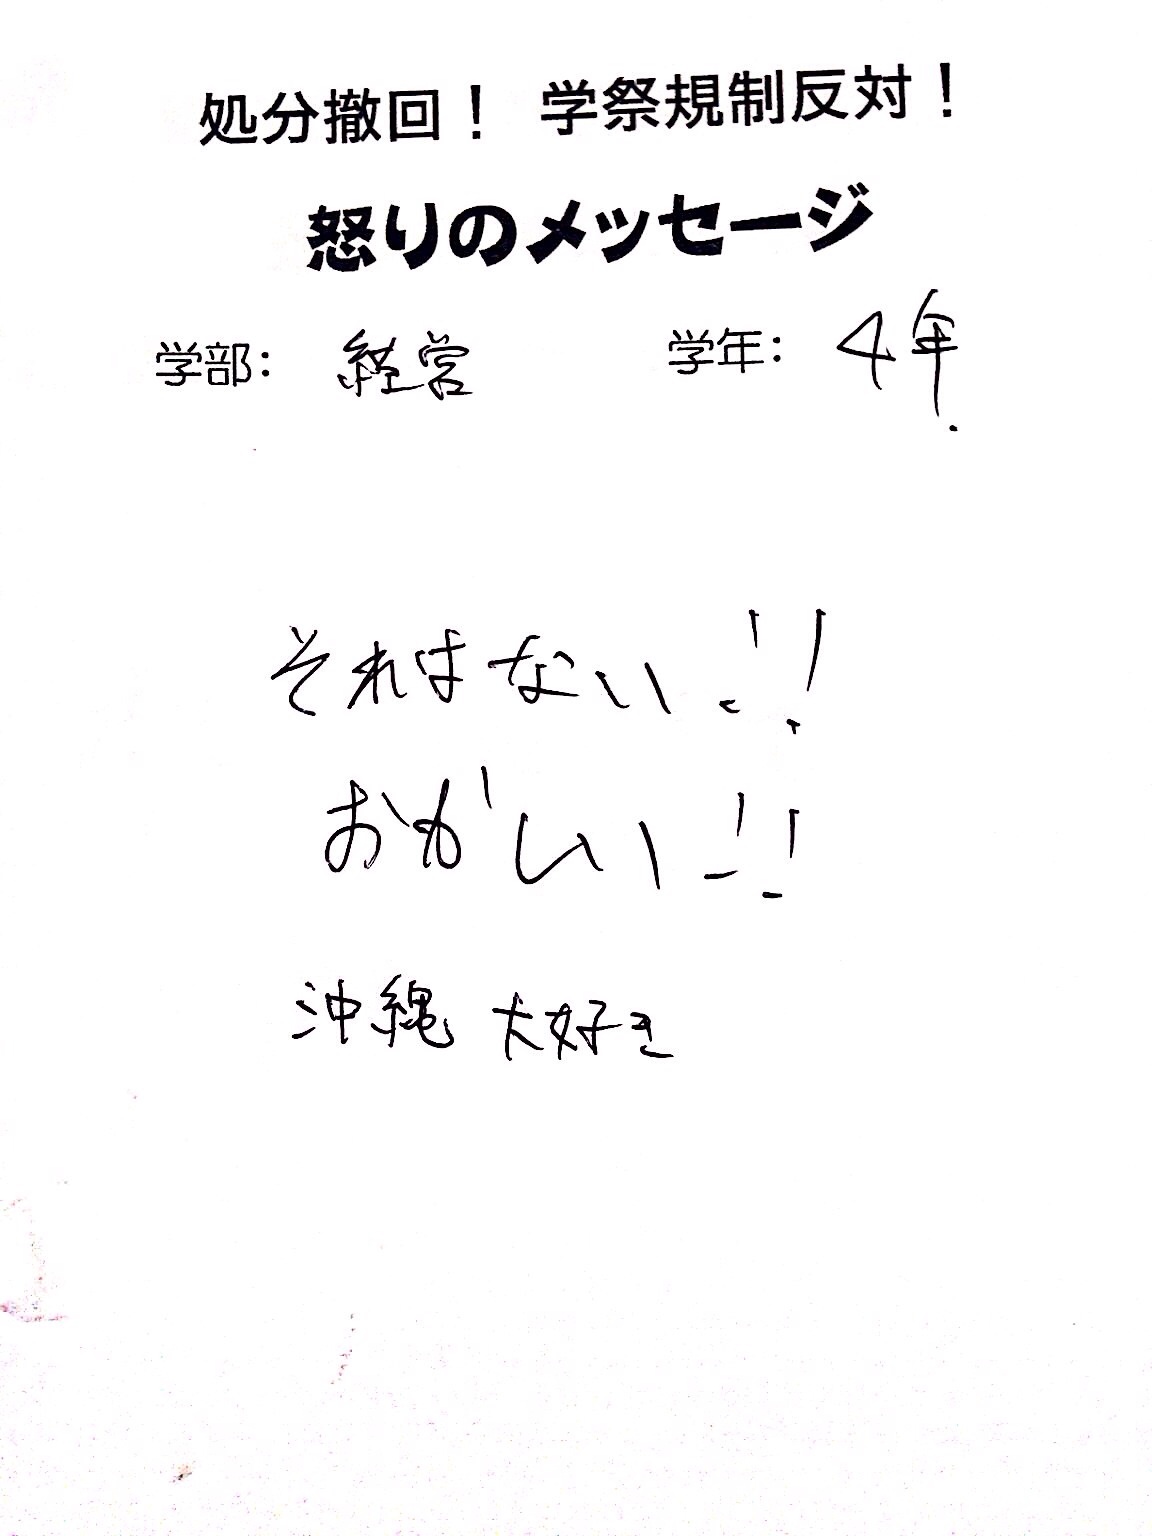 処分撤回！ 学祭規制反対！
怒りのメッセージ
学部: 経営 学年: 4年.
それはない!!
おかしい!!
沖縄 大好き